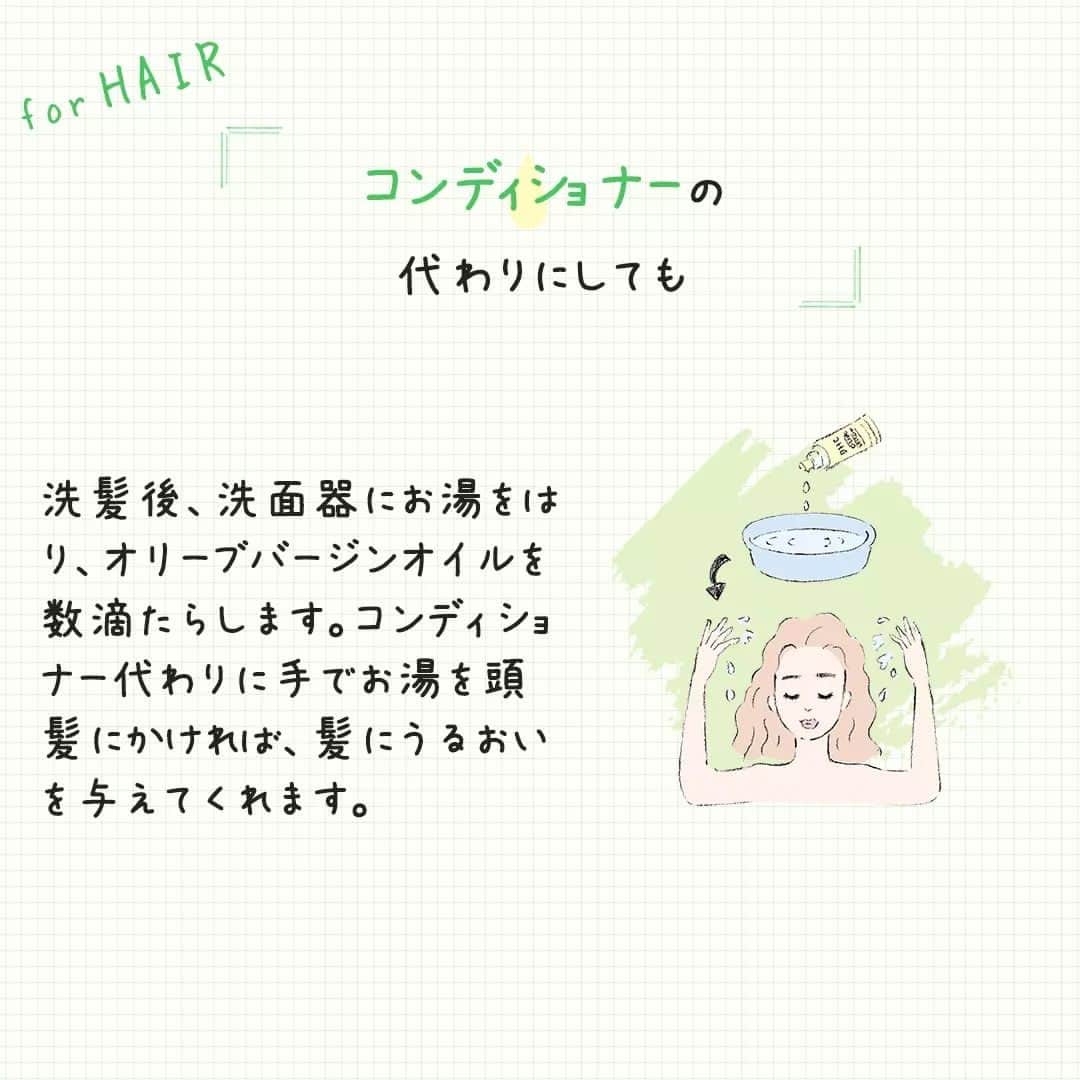 for HAIR
コンディショナーの
代わりにしても
洗髪後、洗面器にお湯をは
り、オリーブバージンオイルを
数滴たらします。コンディショ
ナー代わりに手でお湯を頭
髪にかければ、髪にうるおい
を与えてくれます。
DHC